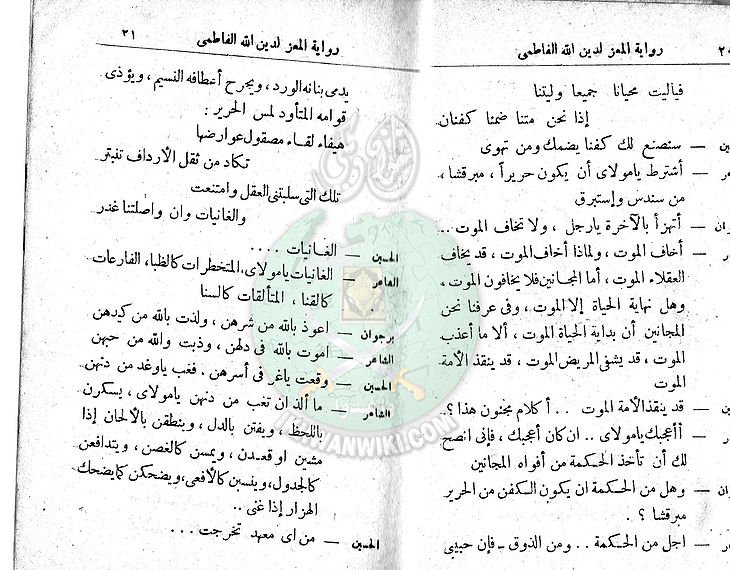 رواية المعز لدين الله الفاطمى
فياليت محيانا جميعا وليتنا
إذا نحن متنا ضمنا كفنان
— سنصنع لك كفنا يضمك ومن تهوى
— أشترط يامولاى أن يكون حريراً ، مبرقشا ،
من سندس وإستبرق
— أتهزأ بالآخرة يارجل ، ولا تخاف الموت ..
— أخاف الموت ، ولماذا أخاف الموت ، قد يخاف
العقلاء الموت ، أما المجانين فلا يخافون الموت ،
وهل نهاية الحياة إلا الموت ، وفى عرفنا نحن
المجانين أن بداية الحياة الموت ، ألا ما أعذب
الموت ، قد يشفى المريض الموت ، قد ينقذ الأمة
الموت
— قد ينقذ الأمة الموت .. أكلام مجنون هذا ؟..
— أأعجبك يامولاى .. ان كان أعجبك ، فإنى انصح
لك أن تأخذ الحكمة من أفواه المجانين
— وهل من الحكمة ان يكون الكفن من الحرير
مبرقشا ؟ .
— اجل من الحكمة .. ومن الذوق ــ فإن حبيبى
رواية المعز لدين الله الفاطمى ٣١
يدمى بنانه الورد ، ويجرح أعطافه النسيم ، ويؤذى
قوامه المتأود لمس الحرير :
هيفاء لفاء مصقول عوارضها
تكاد من ثقل الأرداف تنبتر
تلك التى سلبتنى العقل وامتنعت
والغانيات وان واصلتنا غدر
الحسين — الغانيات ....
الشاعر — الغانيات يامولاى ، المتخطرات كالظبا ، الفارعات
كالقنا ، المتألقات كالسنا
برجوان — اعوذ بالله من شرهن ، ولذت بالله من كيدهن
الشاعر — اموت بالله فى دلهن ، وذبت والله من حبهن
الحسين — وقعت ياغر فى أسرهن . فغب ياوغد من دنهن
الشاعر — ما ألذ ان تغب من دنهن يامولاى ، يسكرن
باللحظ ، ويفتن بالدل ، وينطقن بالألحان إذا
مشين او قعدن ، ويمسن كالغصن ، ويتدافعن
كالجدول ، وينسبن كالأفعى ، ويضحكن كما يضحك
الهزار إذا غنى ..
الحسين — من اى معهد تخرجت ...
ITHWANWIKI.COM